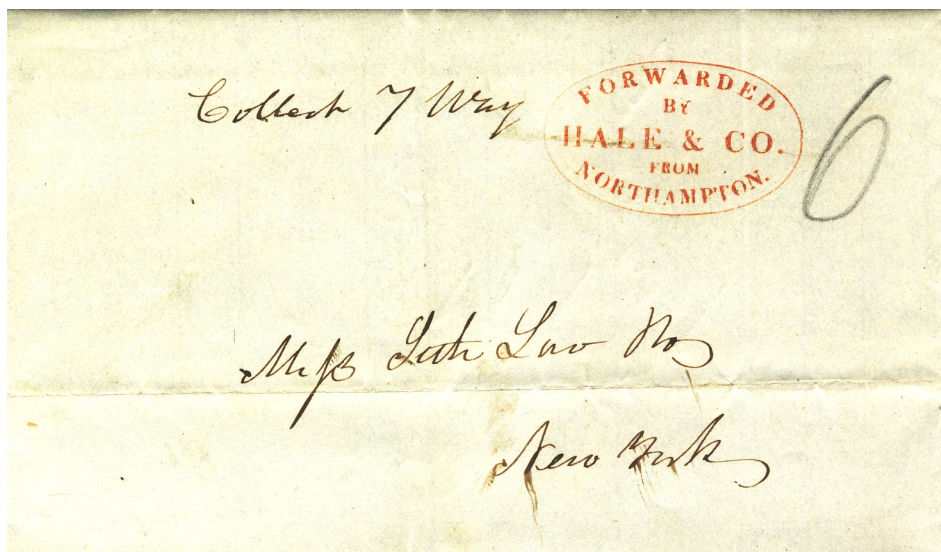 Collect 7 Way
FORWARDED
BY
HALE & CO.
FROM
NORTHAMPTON.
6
Low
New York